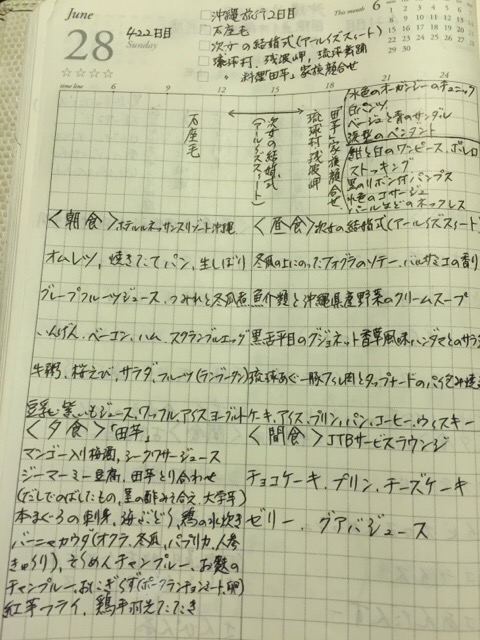 June
28
Sunday
422日目
☆☆☆☆
沖縄旅行2日目
石座毛
次女の結婚式(アールイズスィート)
琉球村、残波岬、琉球舞踊
〃 料理「田芋」家族顔合せ
This month 6
time line 6 9 12 15 18 21 24
石座毛
次女の結婚式
(アールイズスィート)
琉球村、残波岬
「田芋」家族顔合せ
水色のオーガンジーのチュニック
白パンツ
ベージュと青のサンダル
のペンダント
紺と白のワンピース、ボレロ
ストッキング
黒のリボン付パンプス
水色のコサージュ
パールなどのネックレス
<朝食>ホテルルネッサンスリゾート沖縄
オムレツ、焼きたてパン、生しぼり
グレープフルーツジュース、つみれと冬瓜煮
いんげん、ベーコン、ハム、スクランブルエッグ
牛粥、桜えび、サラダ、フルーツ(ランブータン)
豆乳、紫いもジュース、ワッフル、アイスヨーグルト
<昼食>次女の結婚式(アールイズスィート)
冬瓜の上にのったフォアグラのソテー、バルサミコの香り
魚介類と沖縄県産野菜のクリームスープ
黒舌平目のグジョネット香草風味ハンダマとのサラ
琉球あぐー豚フィレ肉とタップナードのパイ包み焼き
ケーキ、アイス、プリン、パン、コーヒー、ウィスキー
<夕食>「田芋」
マンゴー入り梅酒、シークワサージュース
ジーマーミー豆腐、田芋とり合わせ
(だしでのばしたもの、里の酢みそ合え、大学芋)
本まぐろの刺身、海ぶどう、鶏の水炊き
バーニャカウダ(オクラ、冬瓜、パプリカ、人参
きゅうり)、そうめんチャンプルー、お麩の
チャンプルー、おにぎらず(ポークランチョンミート、卵)
紅芋フライ、鶏たたき
<間食>JTBサービスラウンジ
チョコケーキ、プリン、チーズケーキ
ゼリー、グアバジュース